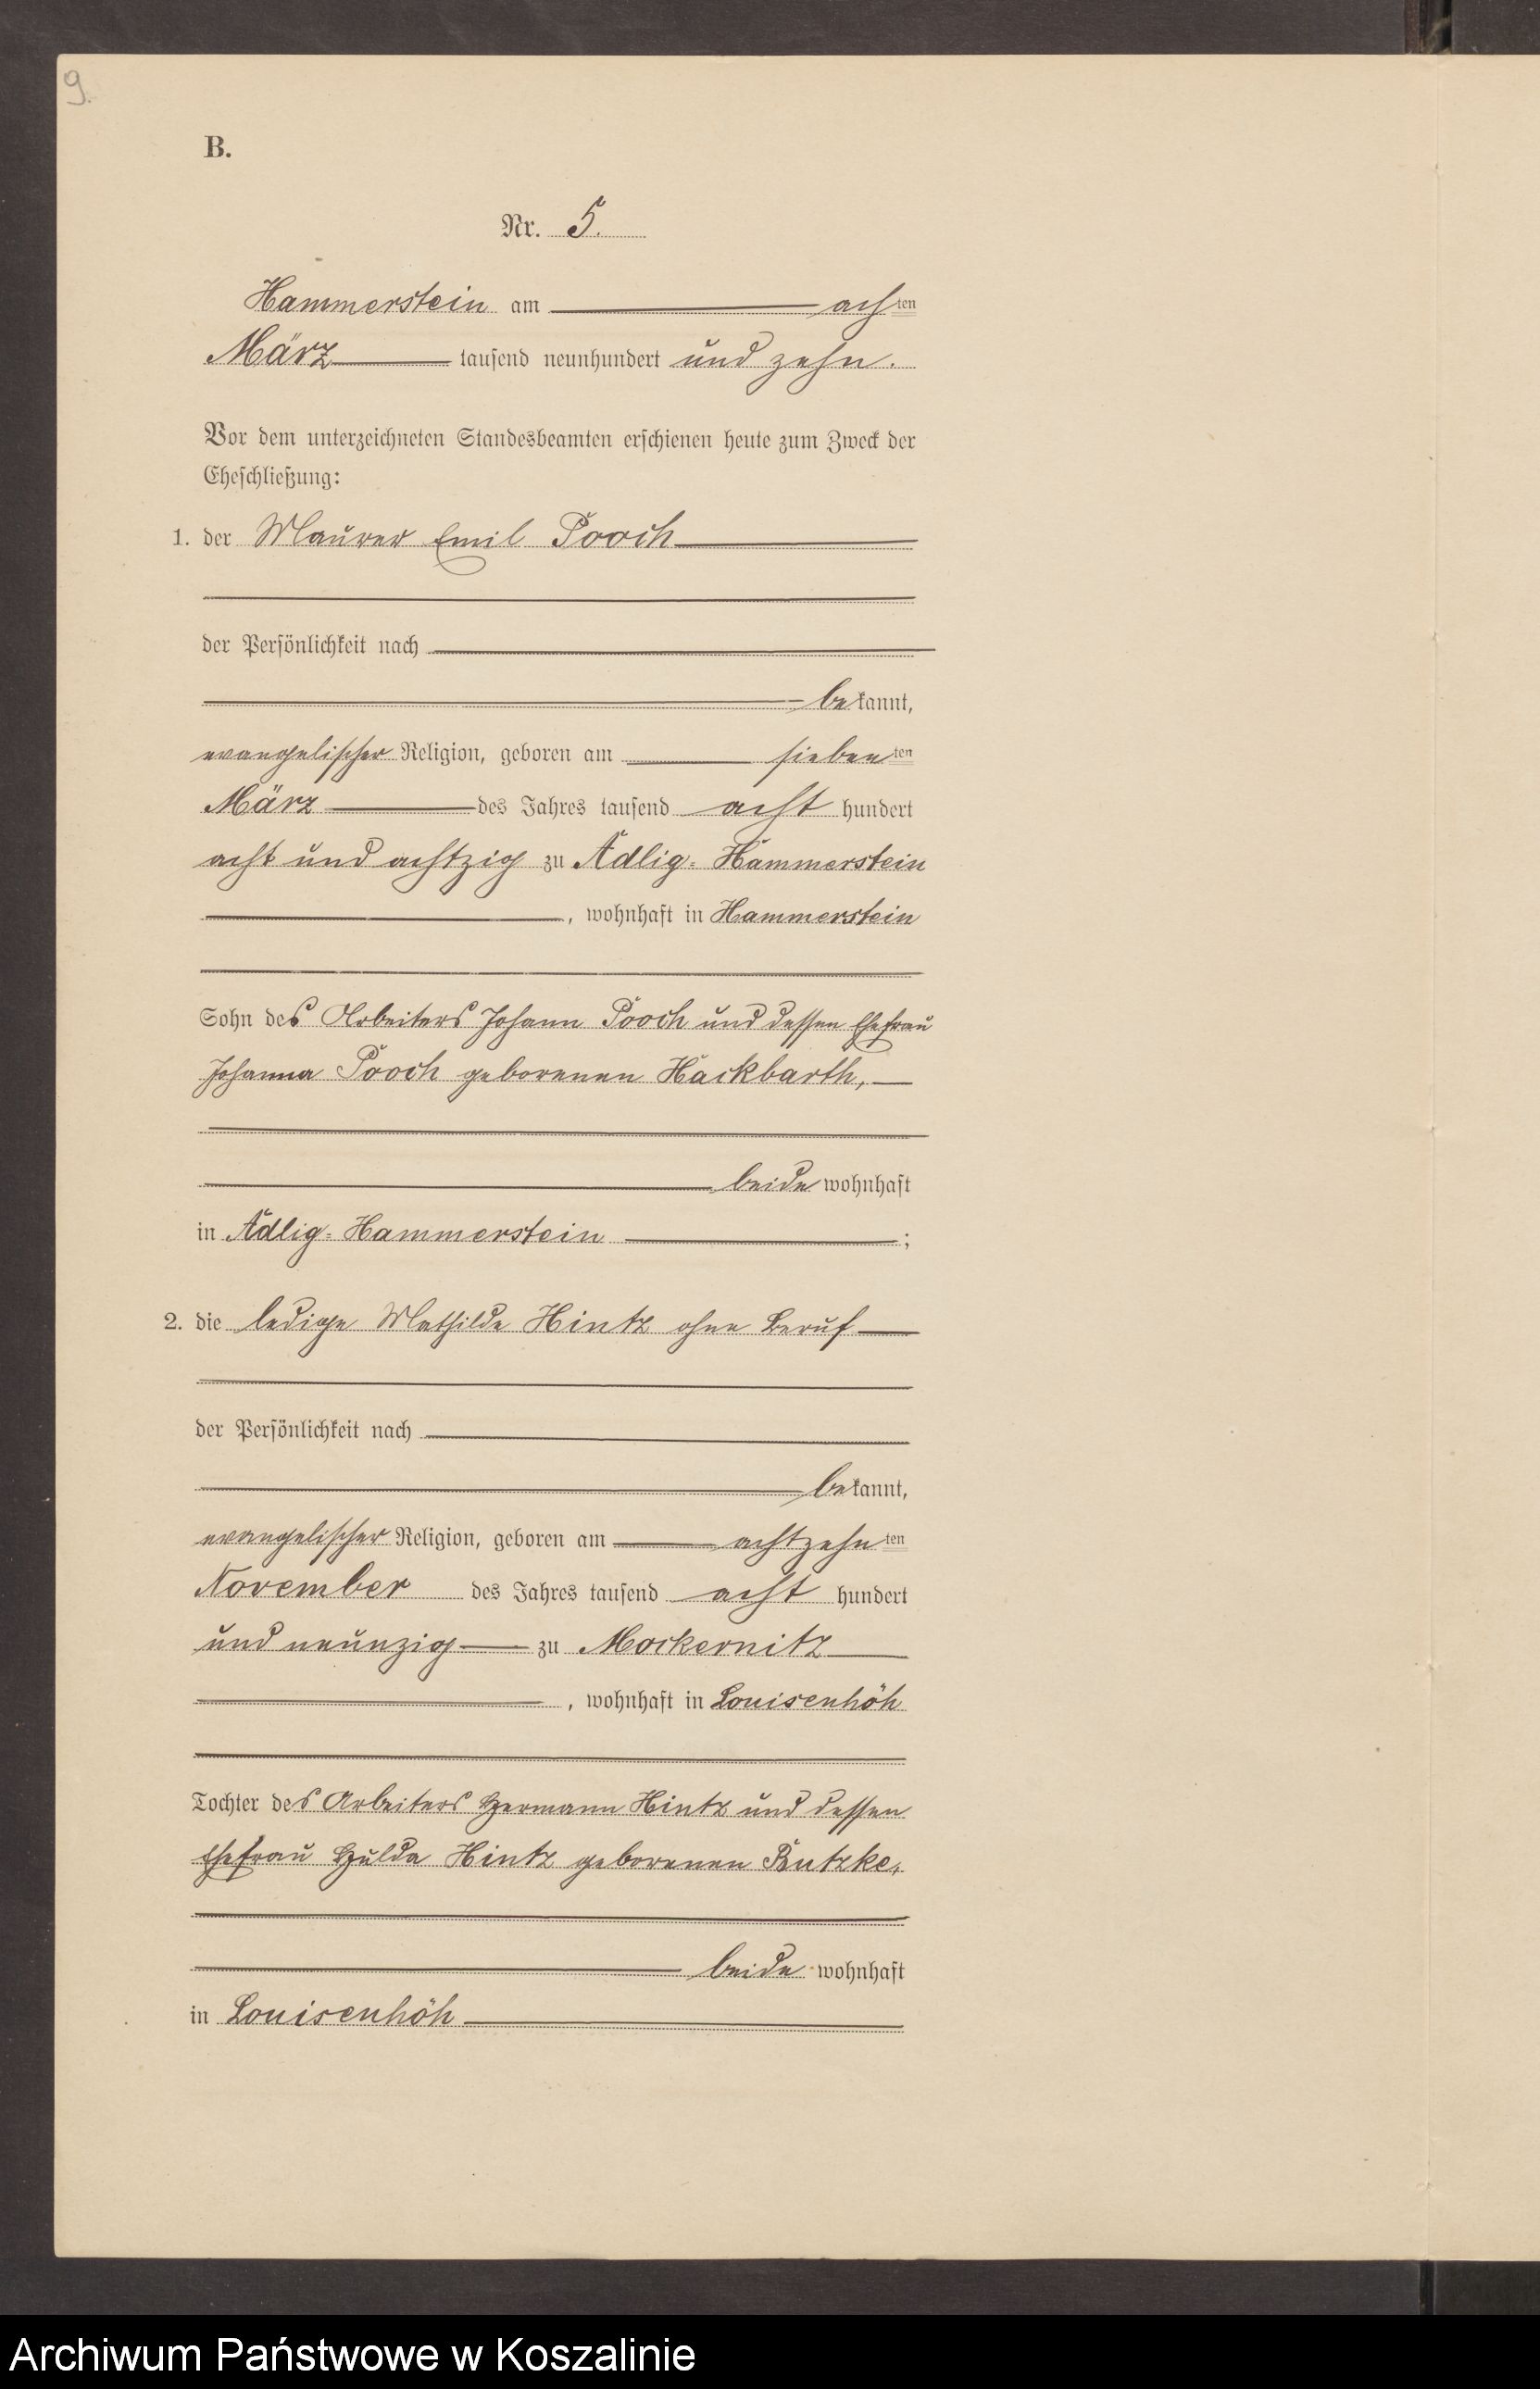 9.
B.
Nr. 5.
Hammerstein am achten
März tausend neunhundert und zehn.
Vor dem unterzeichneten Standesbeamten erschienen heute zum Zweck der
Eheschließung:
1. der Maurer Emil Pooch
der Persönlichkeit nach
bekannt,
evangelischer Religion, geboren am siebenten
März des Jahres tausend acht hundert
acht und achtzig zu Adlig-Hammerstein
, wohnhaft in Hammerstein
Sohn des Arbeiters Johann Pooch und dessen Ehefrau
Johanna Pooch geborenen Hackbarth,
beide wohnhaft
in Adlig-Hammerstein ;
2. die ledige Mathilde Hintz ohne Beruf
der Persönlichkeit nach
bekannt,
evangelischer Religion, geboren am achtzehnten
November des Jahres tausend acht hundert
und neunzig zu Mockernitz
, wohnhaft in Louisenhöh
Tochter des Arbeiters Hermann Hintz und dessen
Ehefrau Hulda Hintz geborenen Butzke,
beide wohnhaft
in Louisenhöh
Archiwum Państwowe w Koszalinie